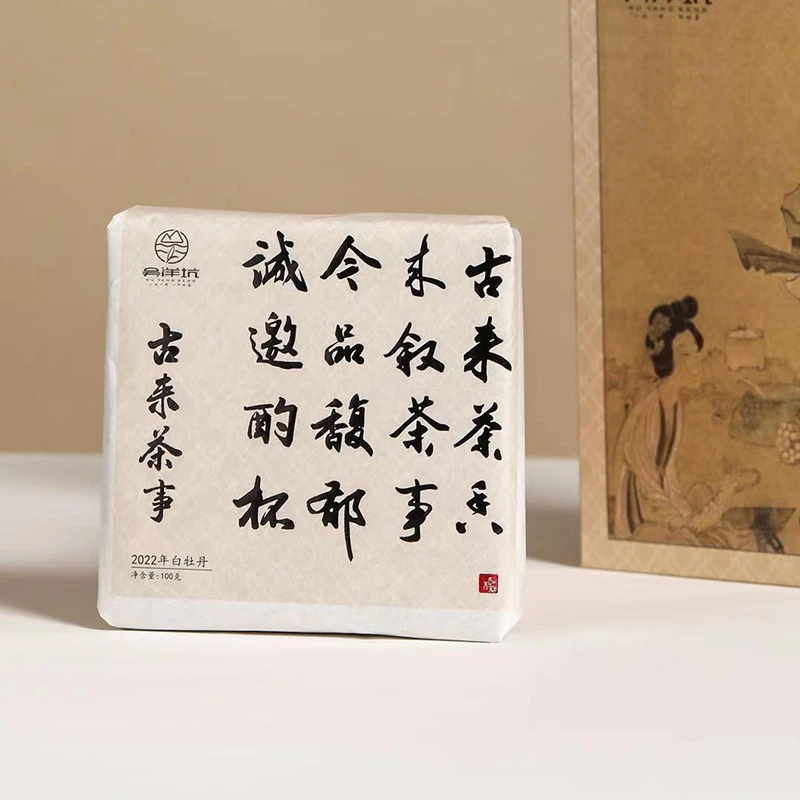 吴洋坑
WU YANG KENG
古来茶香
未叙茶事
今品馥郁
誠邀酌杯
古来茶事
2022年白牡丹
净含量:100克